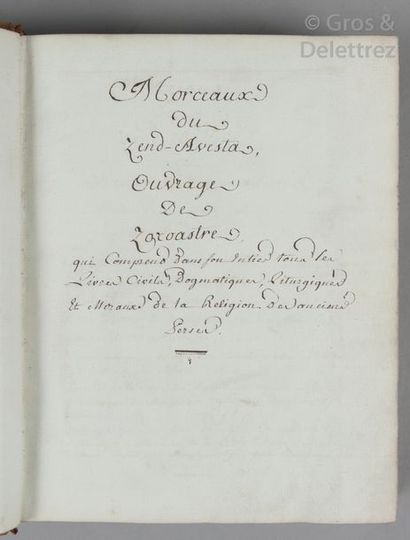 © Gros &
Delettrez
Morceaux
du
Zend-Avesta,
Ouvrage
De
Zoroastre,
qui Comprend dans son Entier tous les
Livres Civils, Dogmatiques, Liturgiques
Et Moraux de la Religion des anciens
Perses.